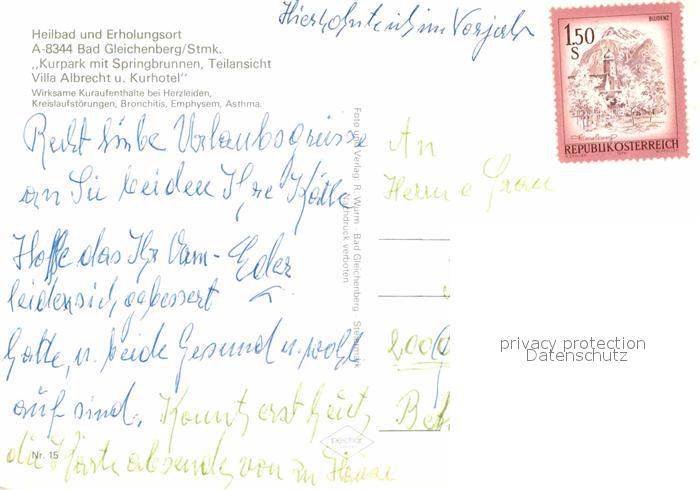 Hier wohnte ich im Vorjahr
Heilbad und Erholungsort
A-8344 Bad Gleichenberg/Stmk.
„Kurpark mit Springbrunnen, Teilansicht
Villa Albrecht u. Kurhotel"
Wirksame Kuraufenthalte bei Herzleiden,
Kreislaufstörungen, Bronchitis, Emphysem, Asthma.
BLUDENZ
1.50
S
REPUBLIK ÖSTERREICH
Recht liebe Urlaubsgrüsse
an Sie beiden Ihre Käthe
Hoffe das Ihr
leiden sich gebessert
hatte, u. beide Gesund u. wohl
auf sind. Konnte erst heute
die Karte absenden, von zu Hause
Foto und Verlag: R. Wurm - Bad Gleichenberg - Steiermark
Nachdruck verboten
An
Herrn e Frau
privacy protection
Datenschutz
pechar
Nr. 15